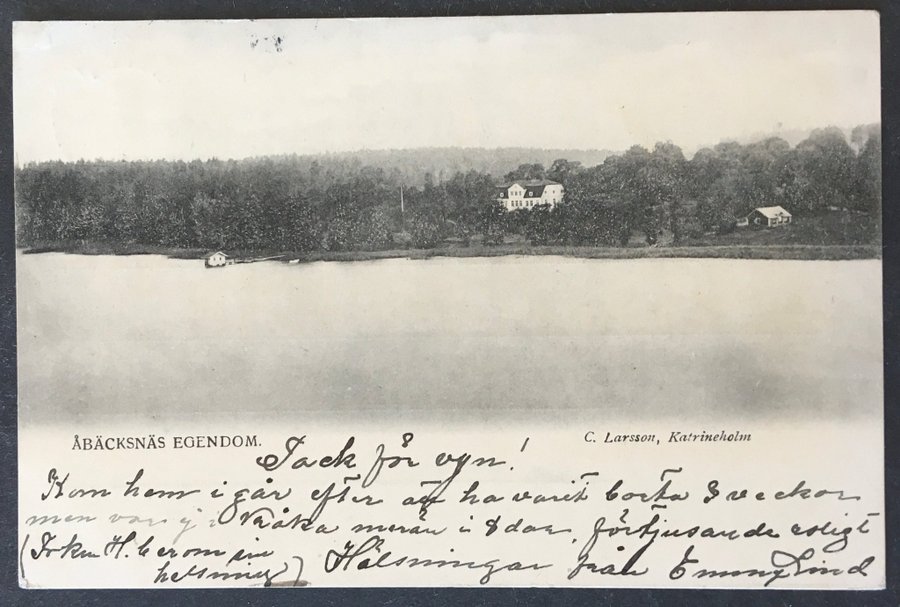 ÅBÄCKSNÄS EGENDOM.
C. Larsson, Katrineholm
Tack för vyn!
Kom hem i går efter att ha varit borta 3 veckor
men var i dar, förtjusande roligt
(Frkn H. ber om sin
helsning) Hälsningar från Emmy Lind